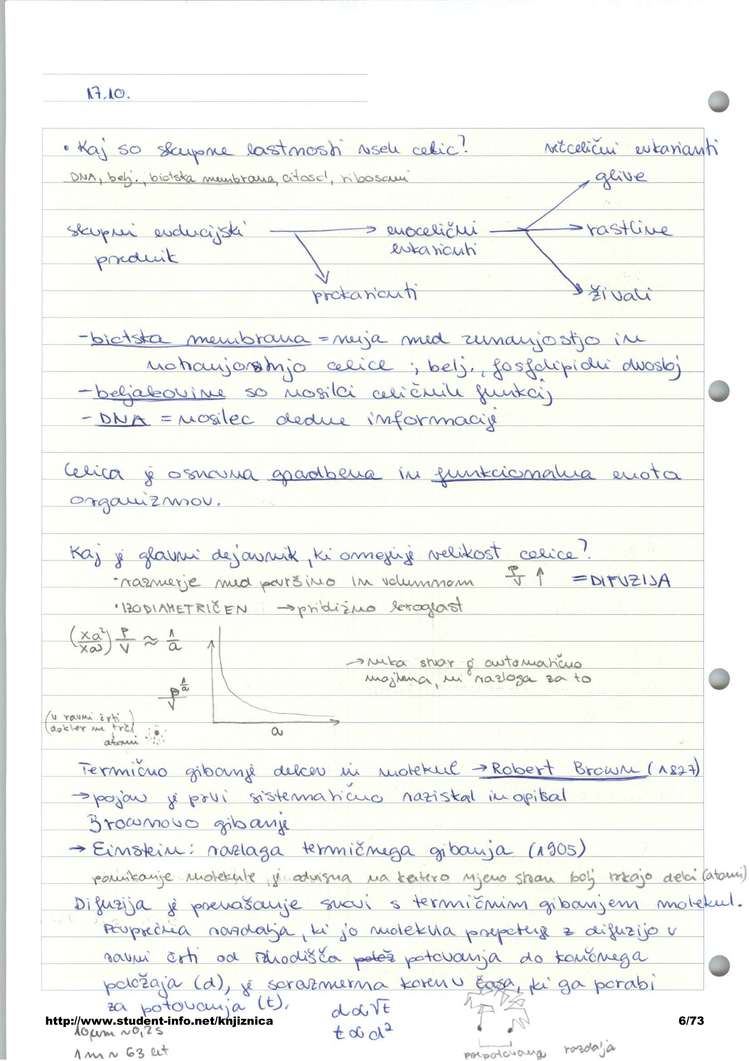 17.10.
• Kaj so skupne lastnosti vseh celic?
večcelični evkarionti
DNA, belj., biotska membrana, citosol, ribosomi
glive
skupni evolucijski prednik
enocelični evkarionti
rastline
prokarionti
živali
- biotska membrana = meja med zunanjostjo in
notranjostnjo celice ; belj., fosfolipidni dvosloj
- beljakovine so nosilci celičnih funkcij
- DNA = nosilec dedne informacije
Celica je osnovna gradbena in funkcionalna enota
organizmov.
Kaj je glavni dejavnik, ki omejuje velikost celice?
• razmerje med površino in volumnom P/V ↑ = DIFUZIJA
• IZODIAMETRIČEN → približno kroglast
P/V ≈ 1/a
→ neka stvar je avtomatično
majhena, ni razloga za to
P/V
1/a
(v ravni črti
dokler ne trči)
atomi
a
Termično gibanje delcev in molekul → Robert Brown (1827)
→ pojav je prvi sistematično raziskal in opisal
Brownovo gibanje
→ Einstein: razlaga termičnega gibanja (1905)
pomikanje molekule je odvisna na katero njeno stran bolj trkajo delci (atomi)
Difuzija je prenašanje snovi s termičnim gibanjem molekul.
Povprečna razdalja, ki jo molekula prepotuje z difuzijo v
ravni črti od izhodišča potovanja do končnega
položaja (d), je sorazmerna korenu časa, ki ga porabi
za potovanja (t).
d ∝ √t
t ∝ d²
http://www.student-info.net/knjiznica
6/73
10 μm ~ 0,2s
1 m ~ 63 let
razdalja